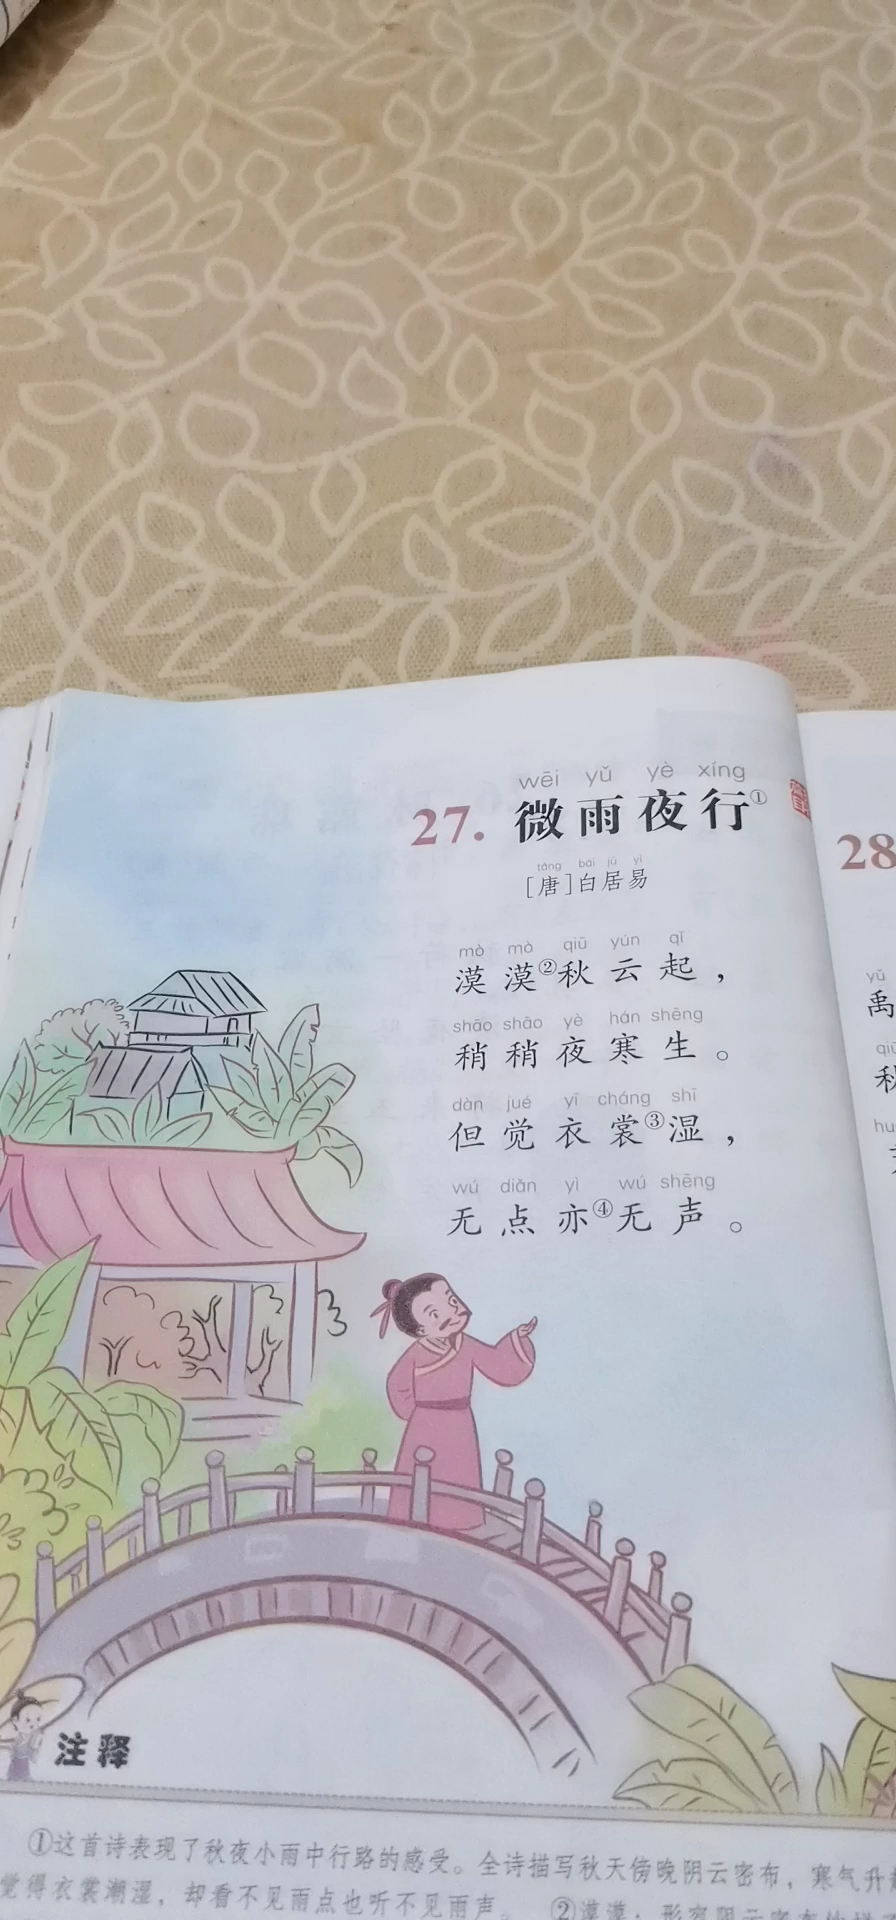 wēi yǔ yè xíng
27. 微雨夜行①
táng bái jū yì
[唐]白居易
mò mò qiū yún qǐ
漠漠②秋云起，
shāo shāo yè hán shēng
稍稍夜寒生。
dàn jué yī cháng shī
但觉衣裳③湿，
wú diǎn yì wú shēng
无点亦④无声。
注释
①这首诗表现了秋夜小雨中行路的感受。全诗描写秋天傍晚阴云密布，寒气升
觉得衣裳潮湿，却看不见雨点也听不见雨声。 ②漠漠：形容阴云密布的样
28
yǔ
禹